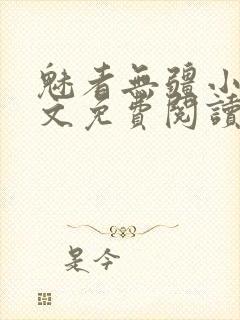 魅者無疆小
文免費閱讀
是今